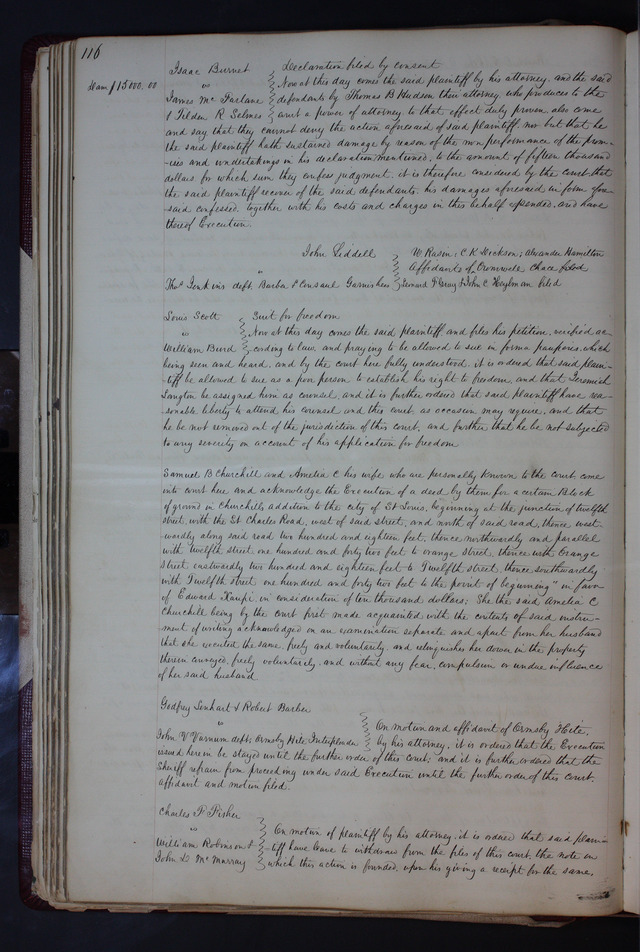 116
Isaac Burnet Declaration filed by consent
Dam $15000.00 " Now at this day comes the said plaintiff by his attorney, and the said
James Mc Farlane defendants by Thomas B Hudson their attorney who produces to the
& Tilden R. Selmes court a power of attorney to that effect duly proven also come
and say that they cannot deny the action aforesaid of said plaintiff, nor but that he
the said plaintiff hath sustained damage by reason of the non performance of the prom-
-ises and undertakings in his declaration mentioned, to the amount of fifteen thousand
dollars for which sum they confess judgment. it is therefore considered by the court that
the said plaintiff recover of the said defendants, his damages aforesaid in form afore
-said confessed, together with his costs and charges in this behalf expended, and have
thereof Execution.
John Liddell W. Rusen; C. K. Dickson; Alexander Hamilton
" Affidavits of Cromwell Chace filed
Thos Jenkins deft. Barba & Consaul Garnishees Leonard P Gray & John C Heylman filed
Louis Scott Suit for freedom
" Now at this day comes the said plaintiff and files his petition, verified ac
William Burd cording to law, and praying to be allowed to sue in forma pauperis, which
being seen and heard, and by the court here fully understood, it is ordered that said plain-
-tiff be allowed to sue as a poor person to establish his right to freedom, and that Jeremiah
Langton be assigned him as counsel, and it is further ordered that said plaintiff have rea-
-sonable liberty to attend his counsel and this court, as occasion may require, and that
he be not removed out of the jurisdiction of this court, and further that he be not subjected
to any severity on account of his application for freedom
Samuel B Churchill and Amelia C his wife who are personally known to the court, come
into court here and acknowledge the Execution of a deed by them for a certain Block
of ground in Churchills addition to the city of St Louis, beginning at the junction of twelfth
street, with the St Charles Road, west of said street, and north of said road, thence west-
wardly along said road two hundred and eighteen feet, thence northwardly and parallel
with twelfth street one hundred and forty two feet to orange street, thence with Orange
street eastwardly two hundred and eighteen feet to Twelfth street, thence southwardly
with Twelfth street one hundred and forty two feet to the point of beginning" in favor
of Edward in consideration of ten thousand dollars; She the said Amelia C
Churchill being by the court first made acquainted with the contents of said instru-
ment of writing acknowledged on an examination separate and apart from her husband
that she executed the same, freely and voluntarily, and relinquishes her dower in the property
therein conveyed, freely voluntarily, and without any fear, compulsion or undue influence
of her said husband
Godfrey Lenhart & Robert Barber
" On motion and affidavit of Ormsby Hite,
John V. Varnum deft; Ormsby Hite, Interpleader by his attorney, it is ordered that the Execution
issued herein be stayed until the further order of this court; and it is further ordered that the
Sheriff refrain from proceeding under said Execution until the further order of this court.
Affidavit and motion filed.
Charles P Fisher
" On motion of plaintiff by his attorney it is ordered that said plain-
William Robinson & -tiff have leave to withdraw from the files of this court, the note on
John D. Mc Murray which this action is founded, upon his giving a receipt for the same.